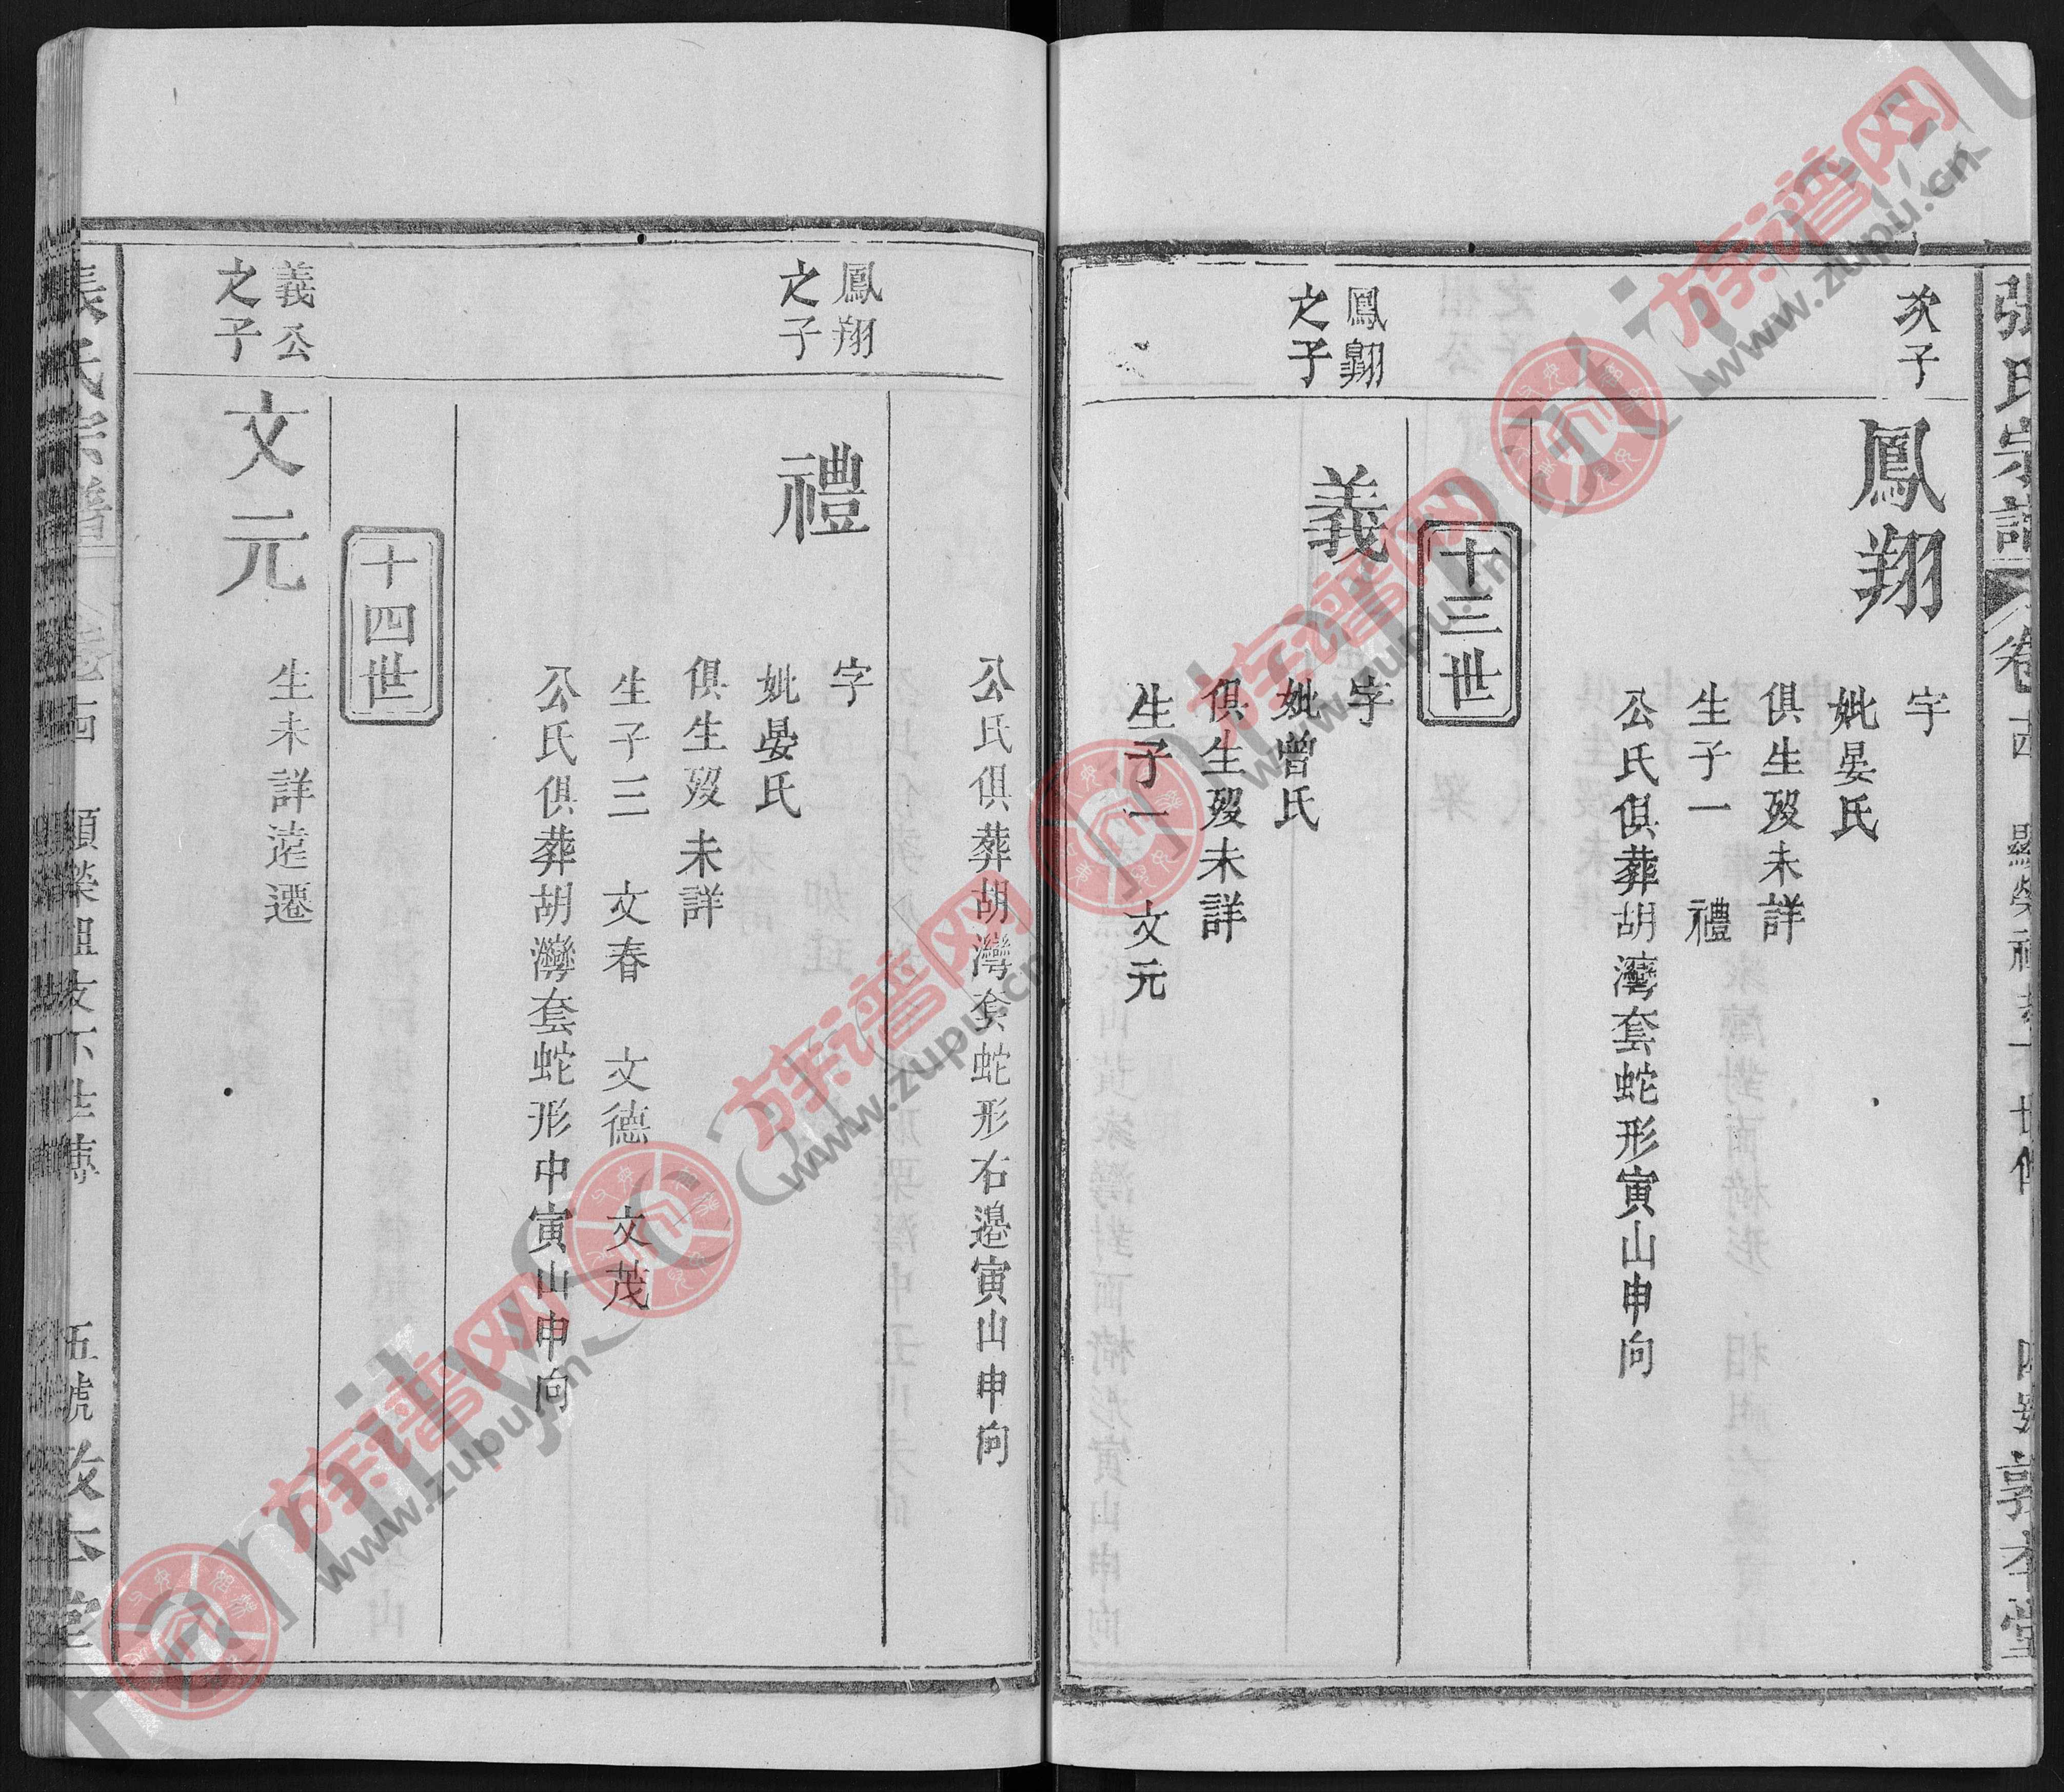 張氏宗譜
卷
次子
鳳翔
字
妣晏氏
俱生歿未詳
生子一 禮
公氏俱葬胡灣套蛇形寅山申向
十三世
鳳翔
之子
義
字
妣曾氏
俱生歿未詳
生子一 文元
公氏俱葬胡灣套蛇形右邊寅山申向
鳳翔
之子
禮
字
妣晏氏
俱生歿未詳
生子三 文春 文德 文茂
公氏俱葬胡灣套蛇形中寅山申向
十四世
義公
之子
文元
生未詳遠遷
張氏宗譜
五號
族谱网
www.zupu.cn
族谱网
www.zupu.cn
族谱网
www.zupu.cn
族谱网
www.zupu.cn